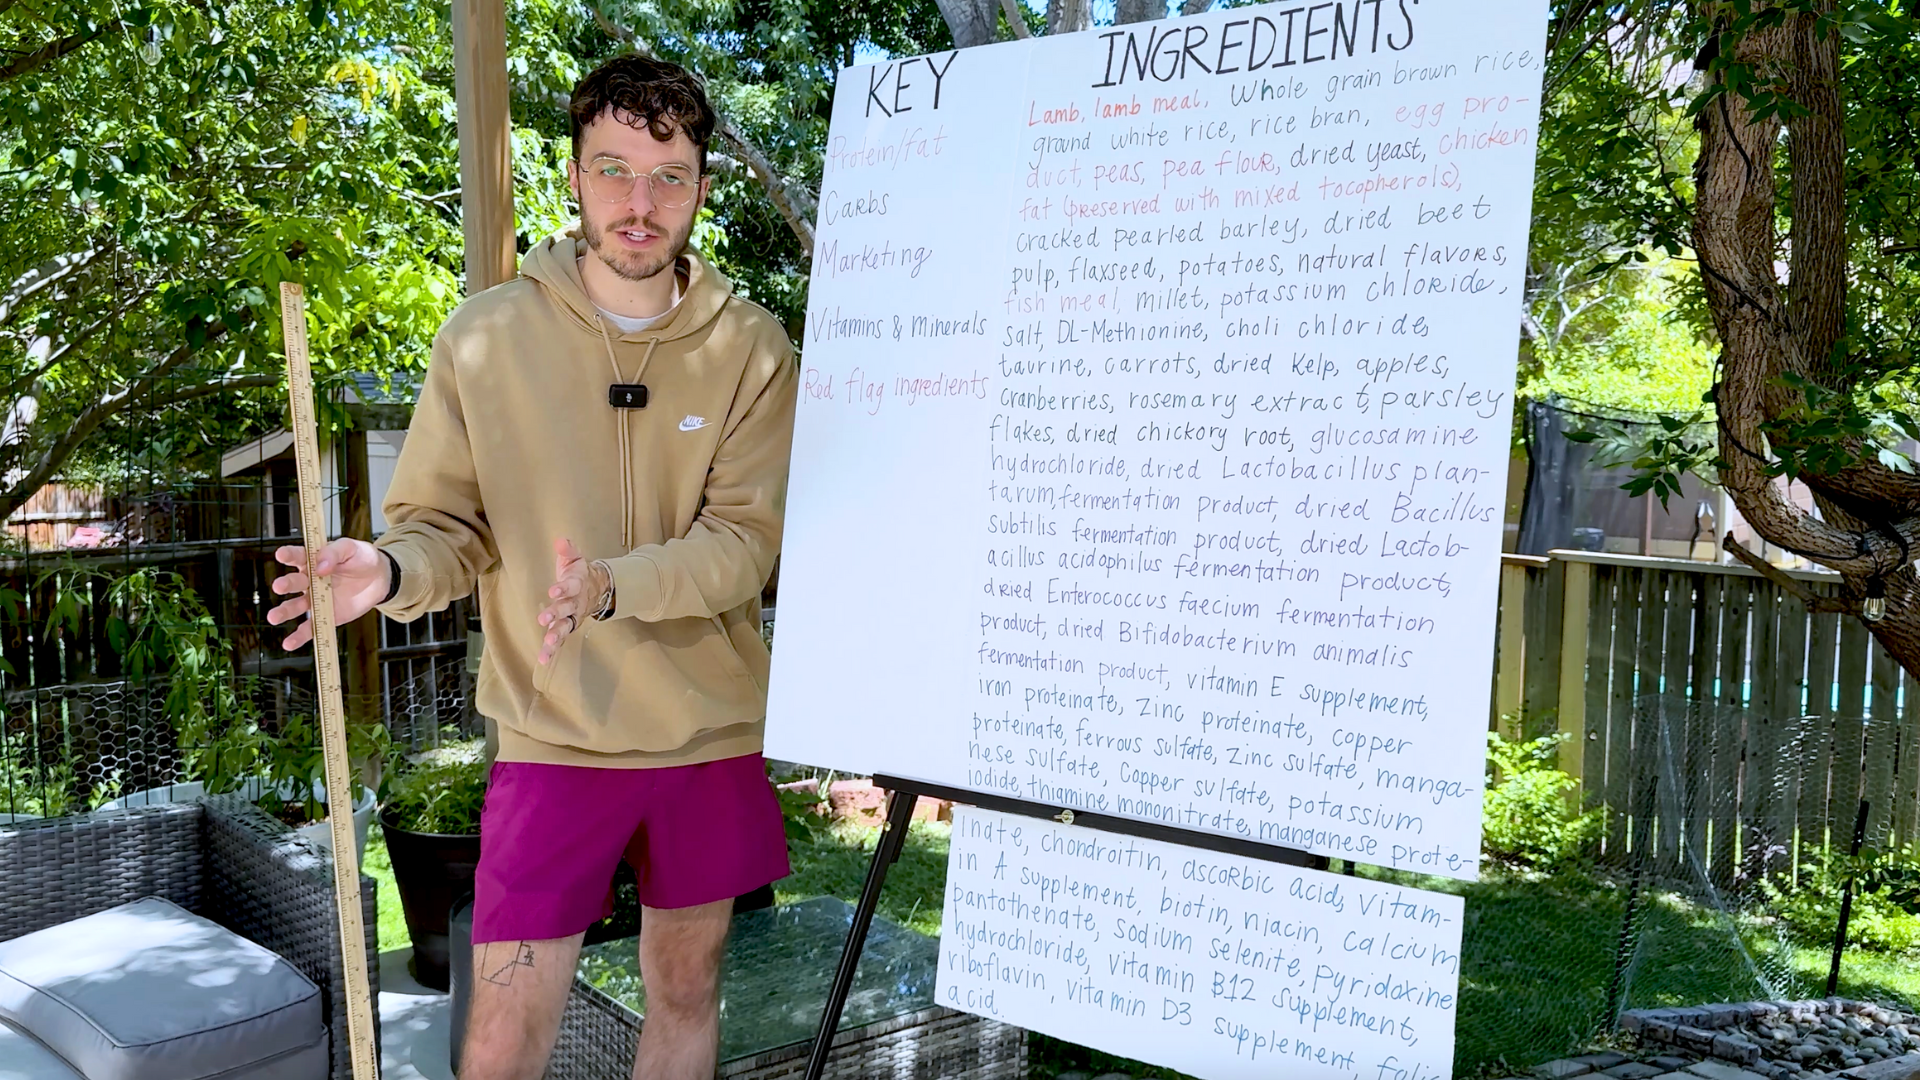 KEY
Protein/fat
Carbs
Marketing
Vitamins & Minerals
Red flag ingredients
INGREDIENTS
Lamb, lamb meal, Whole grain brown rice,
ground white rice, rice bran, egg pro-
duct, peas, pea flour, dried yeast, chicken
fat (preserved with mixed tocopherols),
cracked pearled barley, dried beet
pulp, flaxseed, potatoes, natural flavors,
fish meal, millet, potassium chloride,
salt, DL-Methionine, choli chloride,
taurine, carrots, dried kelp, apples,
cranberries, rosemary extract, parsley
flakes, dried chickory root, glucosamine
hydrochloride, dried Lactobacillus plan-
tarum, fermentation product, dried Bacillus
subtilis fermentation product, dried Lactob-
acillus acidophilus fermentation product,
dried Enterococcus faecium fermentation
product, dried Bifidobacterium animalis
fermentation product, vitamin E supplement,
iron proteinate, Zinc proteinate, copper
proteinate, ferrous sulfate, Zinc sulfate, manga-
nese sulfate, Copper sulfate, potassium
iodide, thiamine mononitrate, manganese prote-
inate, chondroitin, ascorbic acid, vitam-
in A supplement, biotin, niacin, calcium
pantothenate, sodium selenite, pyridoxine
hydrochloride, vitamin B12 supplement,
riboflavin, vitamin D3 supplement, folic
acid.
NIKE